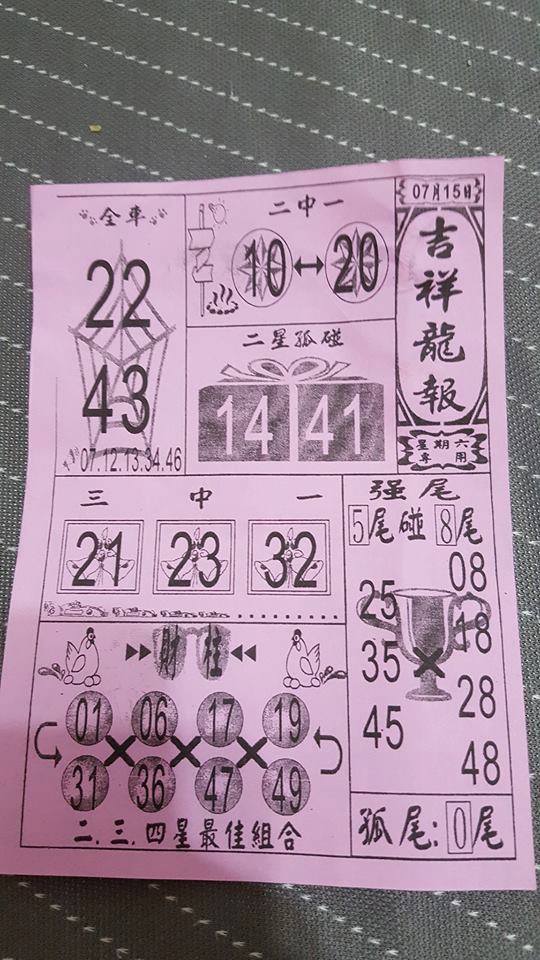 07月15日
吉祥龍報
星期六
專用
全車
22
43
07.12.13.34.46
二中一
10 ↔ 20
二星孤碰
14 41
三中一
21 23 32
强尾
5尾碰8尾
25 08
35 × 18
45 28
48
財柱
01 06 17 19
× × ×
31 36 47 49
二.三.四星最佳組合
孤尾:0尾